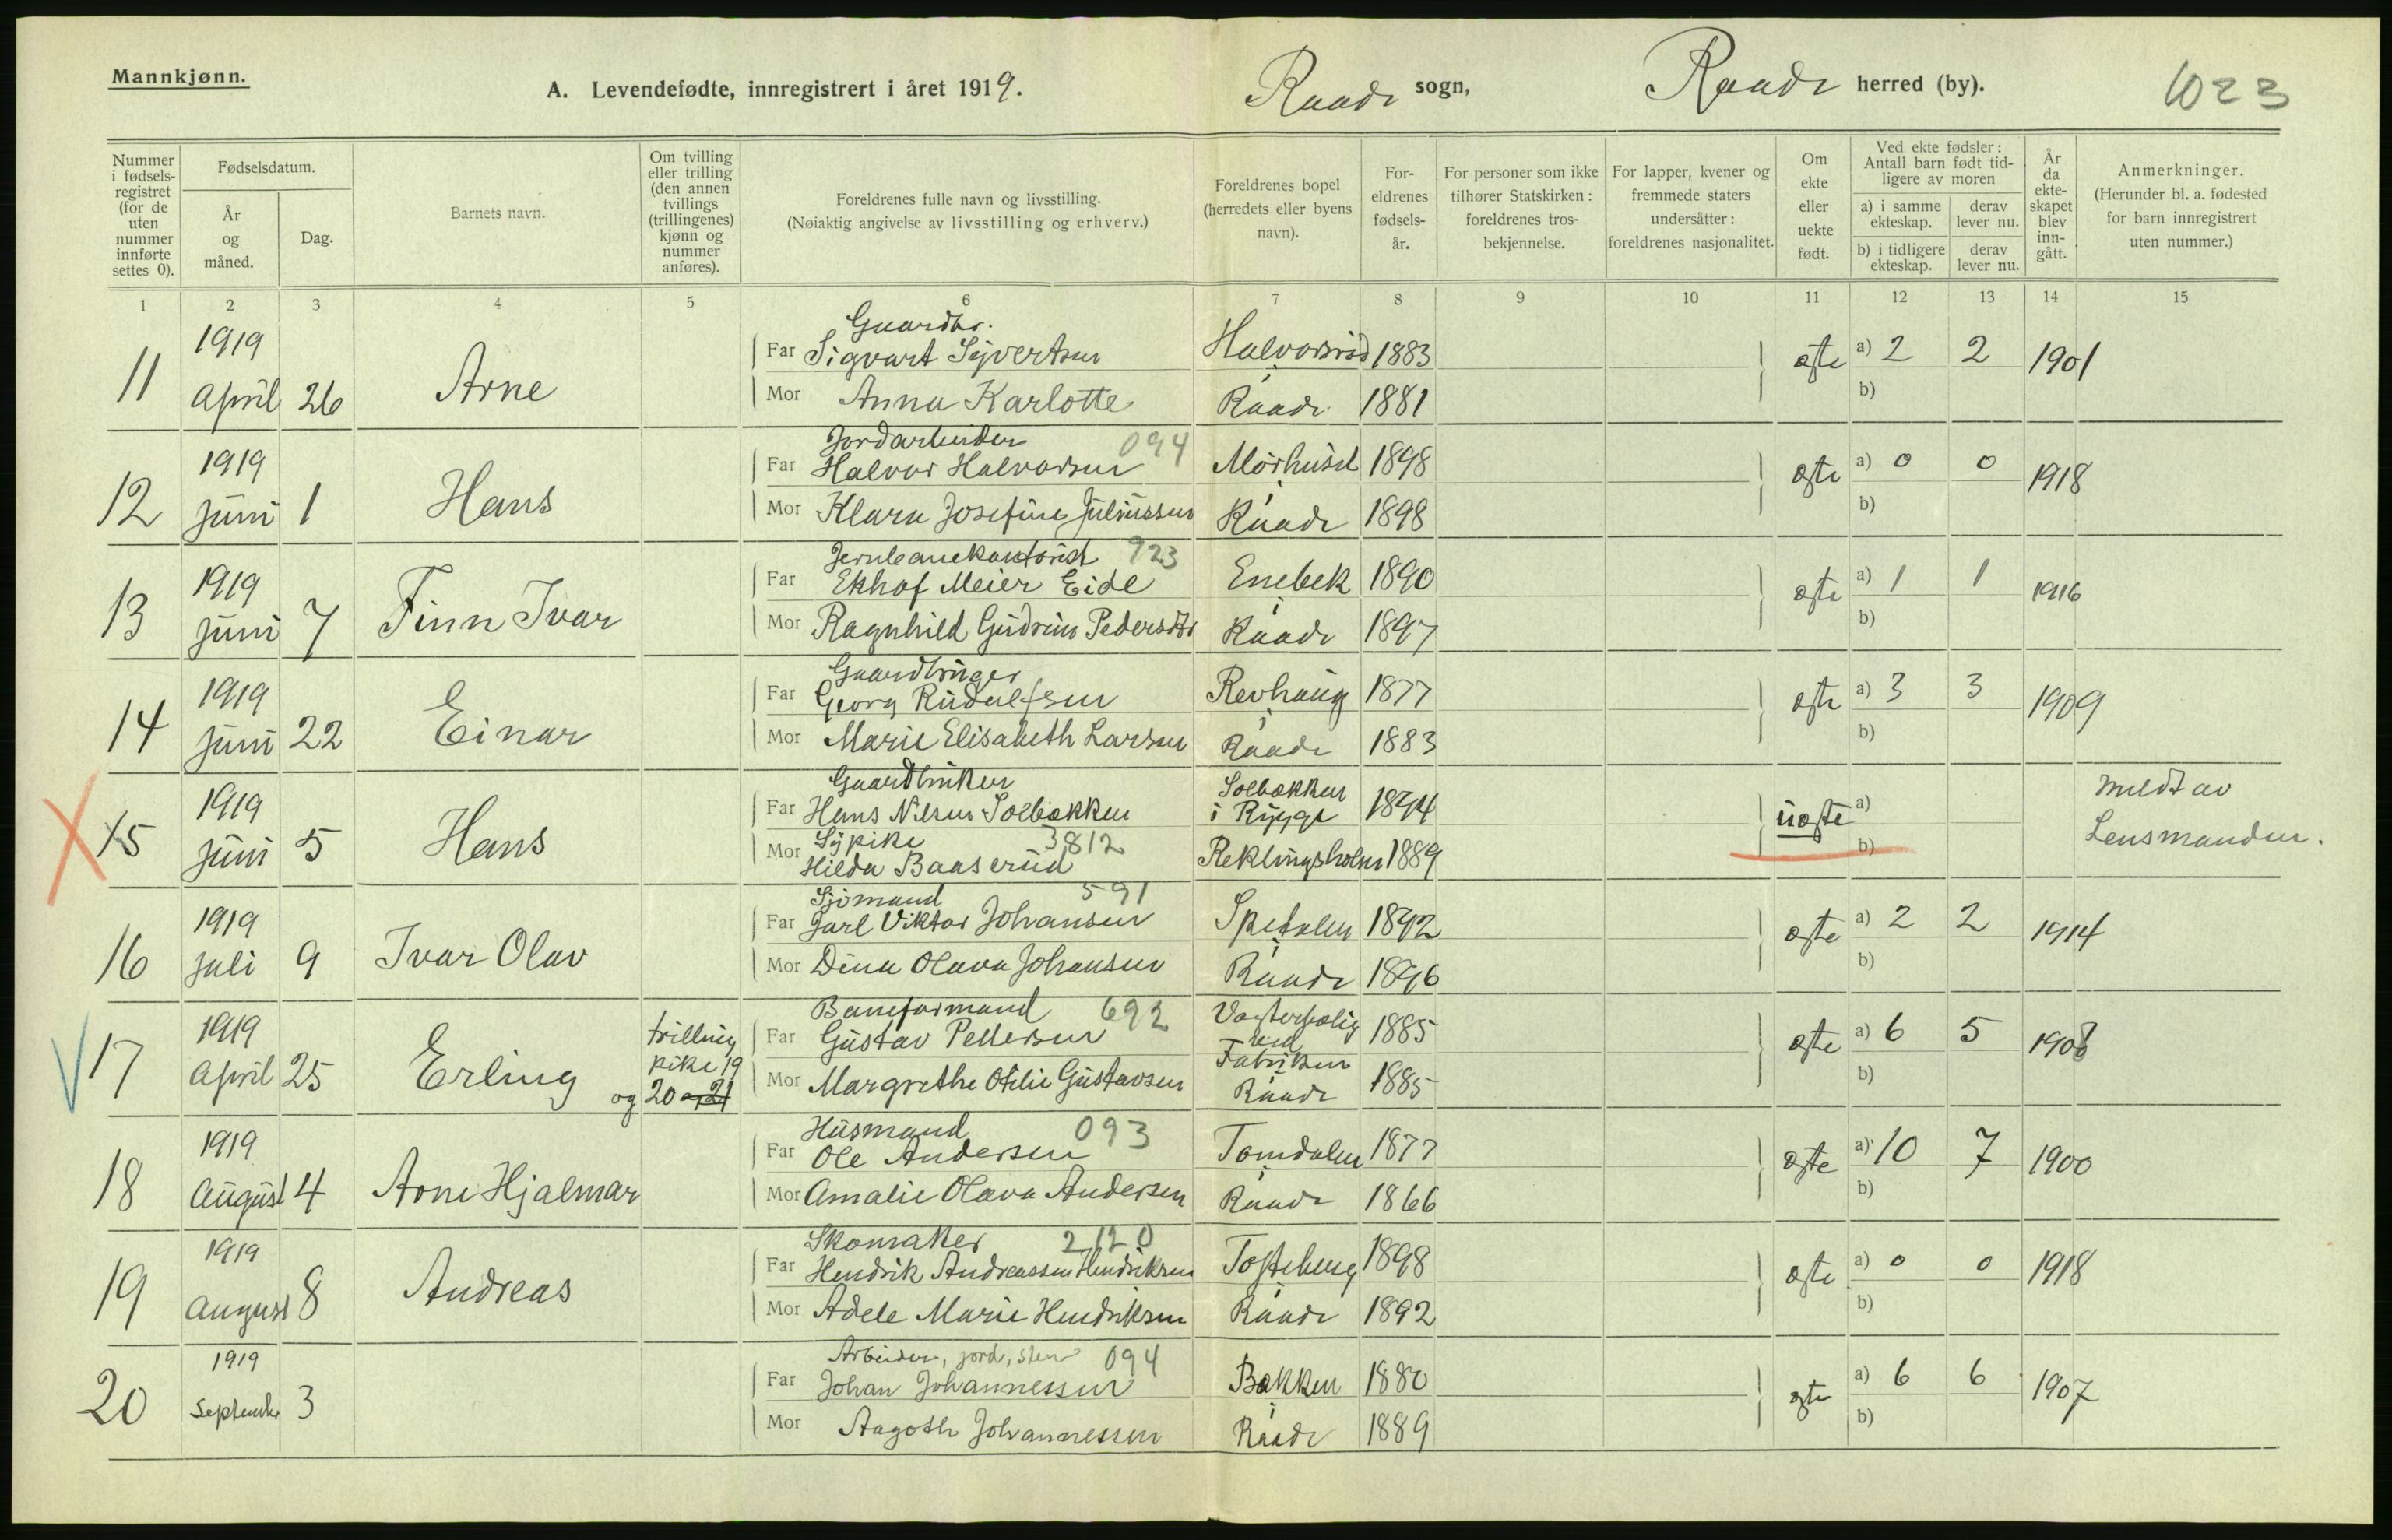 Mannkjønn.
A. Levendefødte, innregistrert i året 1919.
Raade sogn,
Raade herred (by).
1023
Nummer i fødsels-registret (for de uten nummer innførte settes 0).
Fødselsdatum.
År og måned.
Dag.
Barnets navn.
Om tvilling eller trilling (den annen tvillings (trillingenes) kjønn og nummer anføres).
Foreldrenes fulle navn og livsstilling.
(Nøiaktig angivelse av livsstilling og erhverv.)
Foreldrenes bopel (herredets eller byens navn).
For-eldrenes fødsels-år.
For personer som ikke tilhører Statskirken: foreldrenes tros-bekjennelse.
For lapper, kvener og fremmede staters undersåtter: foreldrenes nasjonalitet.
Om ekte eller uekte født.
Ved ekte fødsler: Antall barn født tid-ligere av moren
a) i samme ekteskap.
derav lever nu.
b) i tidligere ekteskap.
derav lever nu.
År da ekte-skapet blev inn-gått.
Anmerkninger.
(Herunder bl. a. fødested for barn innregistrert uten nummer.)
1 2 3 4 5 6 7 8 9 10 11 12 13 14 15
Gaardbr.
11 1919 April 26 Arne
Far Sigvart Syvertsen Halvorsrød 1883 ægte a) 2 2 1901
Mor Anna Karlotte i Raade 1881 b)
Jordarbeider 094
12 1919 Juni 1 Hans
Far Halvor Halvorsen Mørhuset 1898 ægte a) 0 0 1918
Mor Klara Josefine Juliussen i Raade 1898 b)
Jernbanekontorist 923
13 1919 Juni 7 Finn Ivar
Far Ekhof Meier Eide Enebek 1890 ægte a) 1 1 1916
Mor Ragnhild Gudrun Pedersdtr i Raade 1897 b)
Gaardbruger
14 1919 Juni 22 Einar
Far Georg Rudolfsen Revhaug 1877 ægte a) 3 3 1909
Mor Marie Elisabeth Larsen i Raade 1883 b)
Gaardbruker
15 1919 Juni 5 Hans
Far Hans Nilsen Solbakken Solbakken i Rygge 1894 uægte a) meldt av Lensmanden.
Sypike 3812
Mor Hilda Baaserud Reklingsholm 1889 b)
Sjømand 591
16 1919 Juli 9 Ivar Olav
Far Jarl Viktor Johansen Spetalen 1892 ægte a) 2 2 1914
Mor Dina Olava Johansen i Raade 1896 b)
Baneformand 692
17 1919 April 25 Erling trilling pike 19 og 20 og 21
Far Gustav Pettersen Vogterbolig ved Fabriken 1885 ægte a) 6 5 1908
Mor Margrethe Otilie Gustavsen i Raade 1885 b)
Husmand 093
18 1919 August 4 Arne Hjalmar
Far Ole Andersen Tomdalen 1877 ægte a) 10 7 1900
Mor Amalie Olava Andersen i Raade 1866 b)
Skomaker 2120
19 1919 August 8 Andreas
Far Hendrik Andreassen Hendriksen Tosteberg 1898 ægte a) 0 0 1918
Mor Adele Marie Hendriksen i Raade 1892 b)
Arbeider, jord, sten 094
20 1919 September 3
Far Johan Johannessen Bakken 1880 ægte a) 6 6 1907
Mor Aagoth Johannessen i Raade 1889 b)